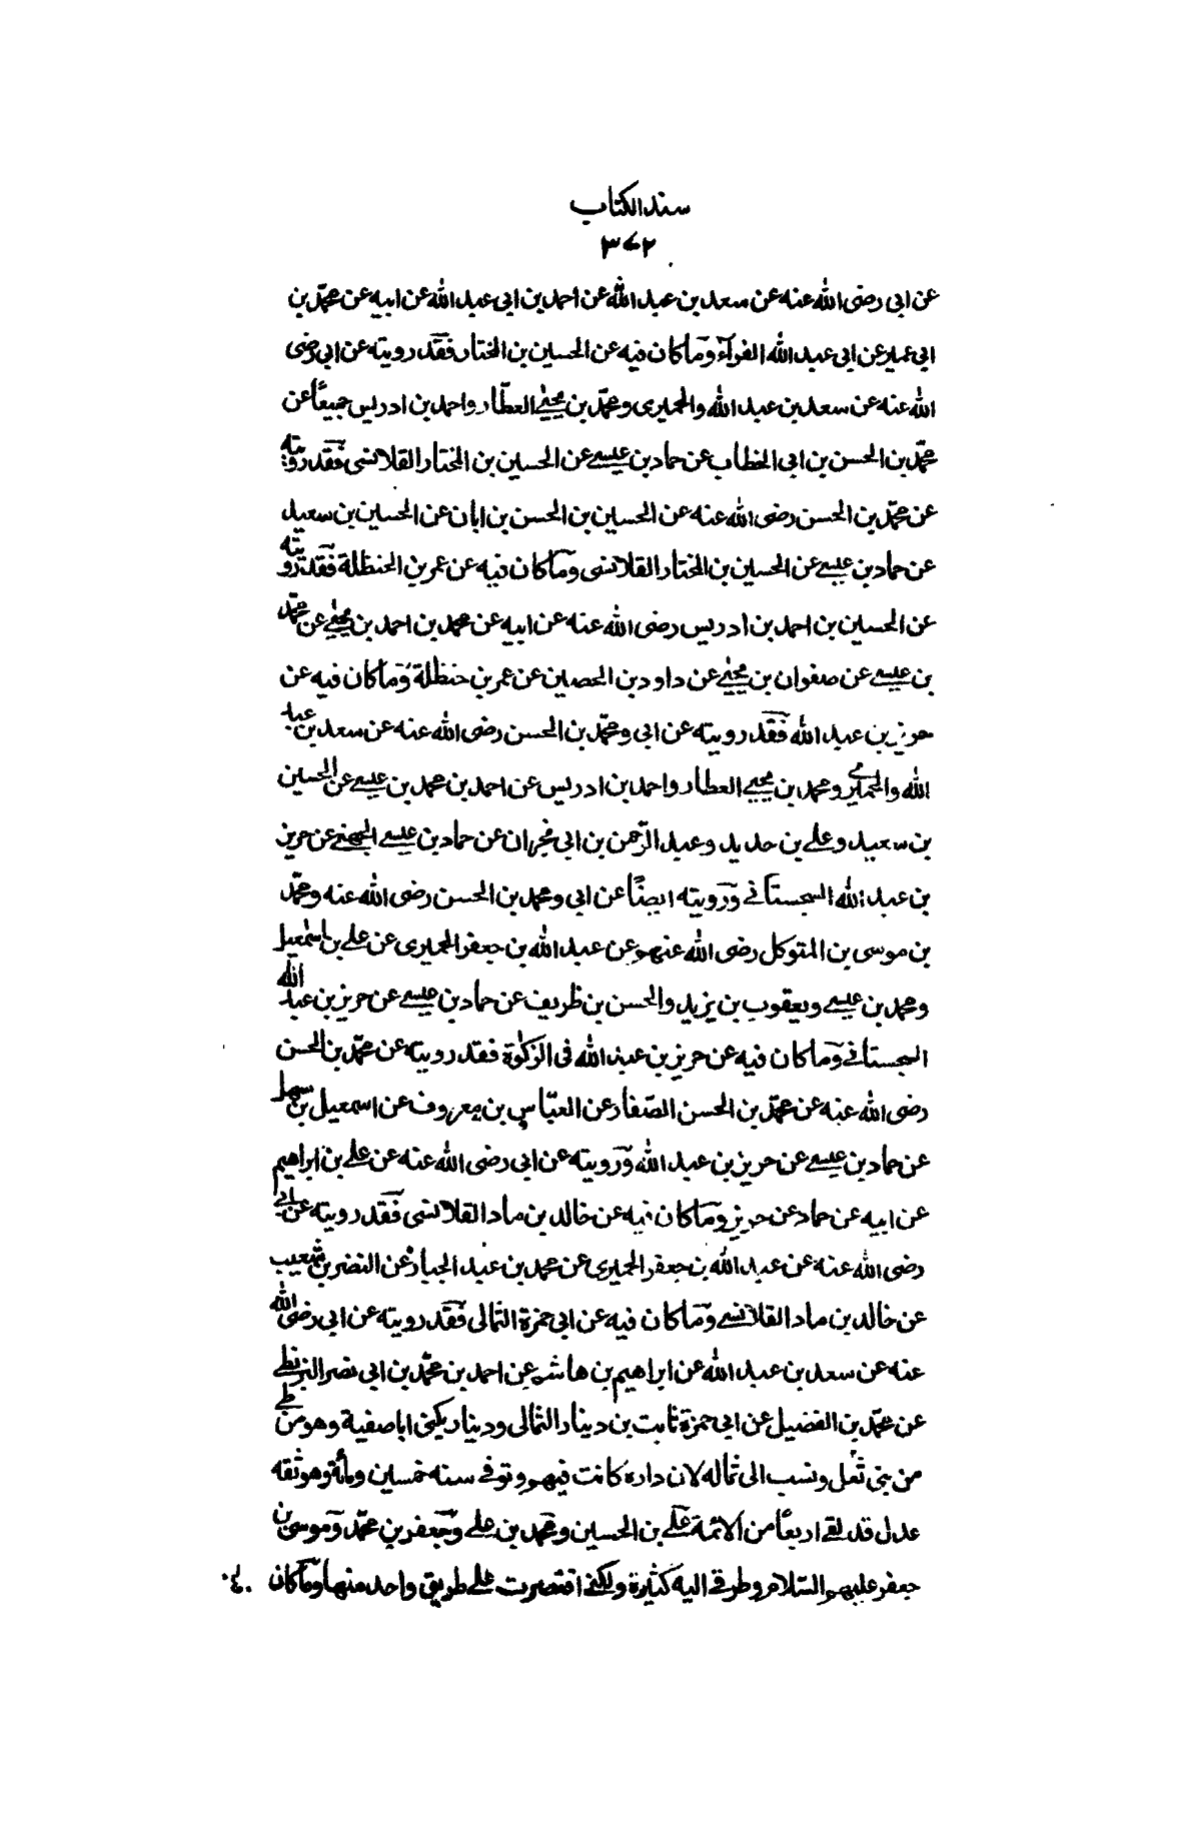 سند الكتاب
٣٧٢
عن ابى رضى الله عنه عن سعد بن عبد الله عن احمد بن ابى عبد الله عن ابيه عن محمّد بن
ابى عمير عن ابى عبد الله الفراء وما كان فيه عن الحسين بن المختار فقد رويته عن ابى رضى
الله عنه عن سعد بن عبد الله والحميرى ومحمّد بن يحيى العطّار واحمد بن ادريس جميعًا عن
محمّد بن الحسن بن ابى الخطاب عن حماد بن عيسى عن الحسين بن المختار القلانسى فقد رويته
عن محمّد بن الحسن رضى الله عنه عن الحسين بن الحسن بن ابان عن الحسين بن سعيد
عن حماد بن عيسى عن الحسين بن المختار القلانسى وما كان فيه عن عمر بن الحنظلة فقد رويته
عن الحسين بن احمد بن ادريس رضى الله عنه عن ابيه عن محمد بن احمد بن يحيى عن محمّد
بن عيسى عن صفوان بن يحيى عن داود بن الحصين عن عمر بن حنظلة وما كان فيه عن
حريز بن عبد الله فقد رويته عن ابى ومحمّد بن الحسن رضى الله عنه عن سعد بن عبد
الله والحميرى ومحمد بن يحيى العطار واحمد بن ادريس عن احمد بن محمد بن عيسى عن الحسين
بن سعيد وعلى بن حديد وعبد الرّحمن بن ابى نجران عن حماد بن عيسى الجهنى عن حريز
بن عبد الله السجستانى ورويته ايضًا عن ابى ومحمد بن الحسن رضى الله عنه ومحمّد
بن موسى بن المتوكل رضى الله عنهم عن عبد الله بن جعفر الحميرى عن على بن اسمعيل
ومحمد بن عيسى ويعقوب بن يزيد والحسن بن ظريف عن حماد بن عيسى عن حريز بن عبد الله
السجستانى وما كان فيه عن حريز بن عبد الله فى الزكوة فقد رويته عن محمّد بن الحسن
رضى الله عنه عن محمّد بن الحسن الصّفار عن العبّاس بن معروف عن اسمعيل بن سهل
عن حماد بن عيسى عن حريز بن عبد الله ورويته عن ابى رضى الله عنه عن على بن ابراهيم
عن ابيه عن حماد عن حريز وما كان فيه عن خالد بن ماد القلانسى فقد رويته عن ابى
رضى الله عنه عن عبد الله بن جعفر الحميرى عن محمد بن عبد الجبار عن النضر بن شعيب
عن خالد بن ماد القلانسى وما كان فيه عن ابى حمزة الثمالى فقد رويته عن ابى رضى الله
عنه عن سعد بن عبد الله عن ابراهيم بن هاشم عن احمد بن محمّد بن ابى نصر البزنطى
عن محمّد بن الفضيل عن ابى حمزة ثابت بن دينار الثمالى ودينار يكنى ابا صفية وهو من طى
من بنى ثعل ونسب الى ثماله لان داره كانت فيهم وتوفى سنه خمسين ومأة وهو ثقه
عدل قد لقى اربعًا من الائمة على بن الحسين ومحمد بن على وجعفر بن محمّد وموسى بن
جعفر عليهم السّلام وطرقى اليه كثيرة ولكنى اقتصرت على طريق واحد منها وما كان